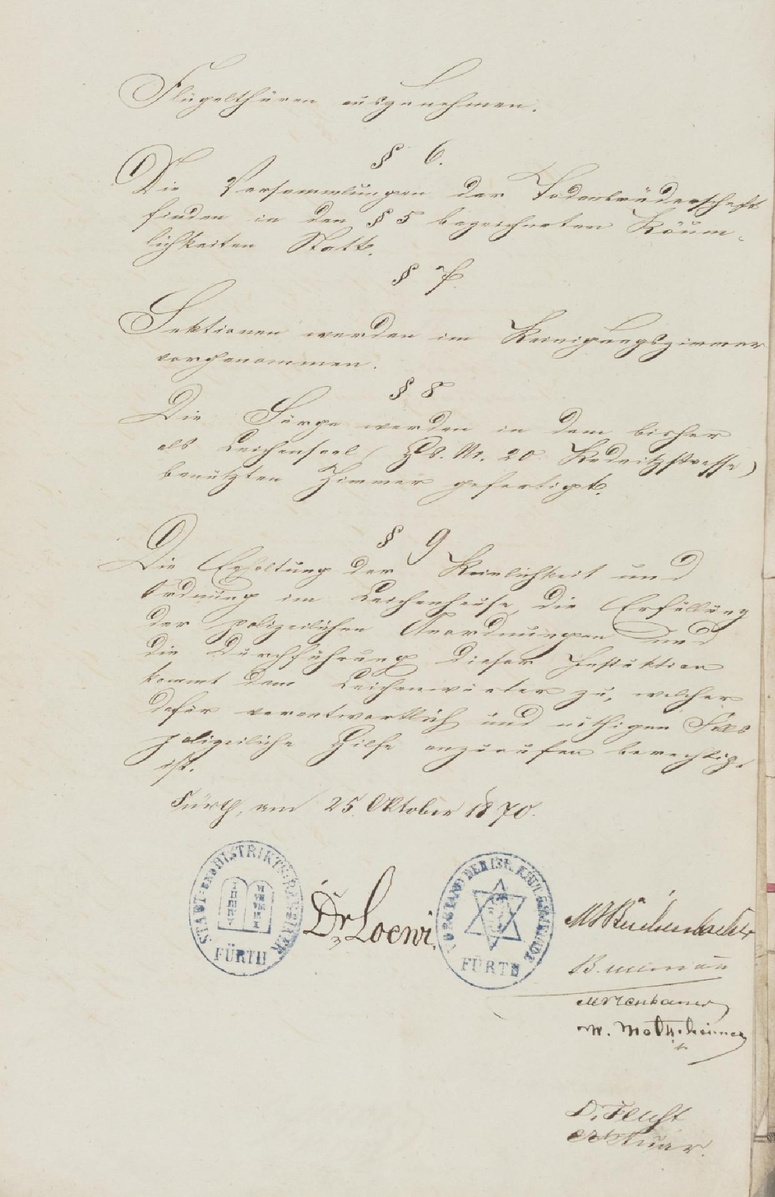 Flügelthüren auszunehmen.
§ 6.
Die Versammlungen der Todenbrüderschaft
finden in den § 5 bezeichneten Räum-
lichkeiten Statt.
§ 7.
Sektionen werden im Reinigungszimmer
vorgenommen.
§ 8
Die Särge werden in dem bisher
als Leichensaal (Hs. Nr. 20 Rednitzstrasse)
benützten Zimmer gefertigt.
§ 9
Die Erhaltung der Reinlichkeit und
Ordnung im Leichenhause, die Erfüllung
der polizeilichen Anordnungen und
die Durchführung dieser Instuktion
kommt dem Leichenwärter zu, welcher
dafür verantwortlich und nöthigen Falls
polizeiliche Hilfe anzurufen berechtigt
ist.
Fürth, am 25. Oktober 1870.
STADT- UND DISTRIKTS-RABBINER
FÜRTH
Dr Loewi.
VORSTAND DER ISR. KULTUSGEMEINDE
FÜRTH